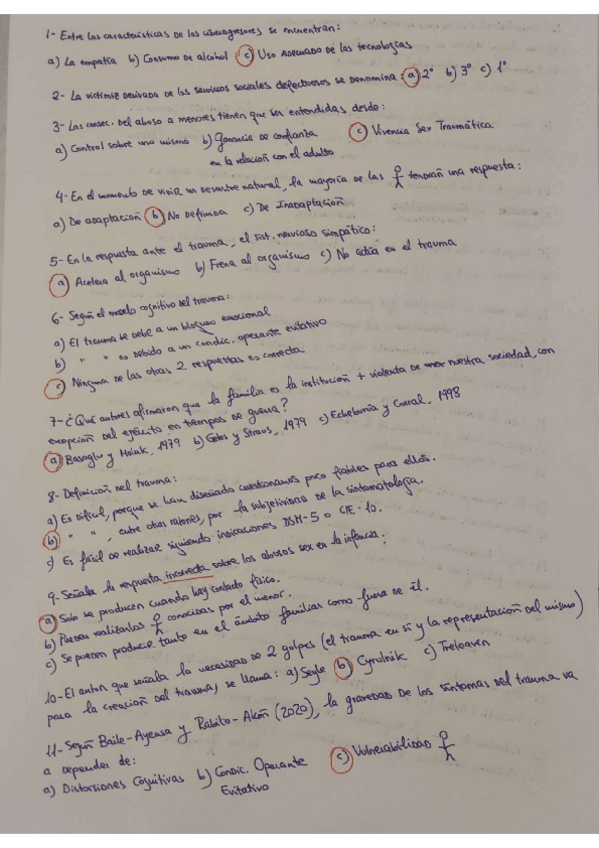 1- Entre las características de los ciberagresores se encuentran:
a) La empatía b) Consumo de alcohol c) Uso Adecuado de las tecnologías
2- La victimiz derivada de los servicios sociales defectuosos se denomina: a) 2º b) 3º c) 1º
3- Las consec. del abuso a menores tienen que ser entendidas desde:
a) Control sobre uno mismo b) Ganancia de confianza c) Vivencia Sex Traumática
en la relación con el adulto
4- En el momento de vivir un desastre natural, la mayoría de las tendrán una respuesta:
a) De adaptación b) No definida c) De Inadaptación
5- En la respuesta ante el trauma, el sist. nervioso simpático:
a) Acelera al organismo b) Frena al organismo c) No actúa en el trauma
6- Según el modelo cognitivo del trauma:
a) El trauma se debe a un bloqueo emocional
b) " " es debido a un condic. operante evitativo
c) Ninguna de las otras 2 respuestas es correcta.
7- ¿Qué autores afirmaron que la familia es la institución + violenta de nuestra sociedad, con
excepción del ejército en tiempos de guerra?
a) Basoglu y , 1979 b) Gelles y Straus, 1979 c) Echeburúa y Corral, 1998
8- Definición del trauma:
a) Es difícil, porque se han diseñado cuestionarios poco fiables para ellos.
b) " " , entre otras razones, por la subjetividad de la sintomatología.
c) Es fácil de realizar siguiendo indicaciones DSM-5 o CIE-10.
9- Señala la respuesta incorrecta sobre los abusos sex en la infancia:
a) Solo se producen cuando hay contacto físico.
b) Pueden realizarlos conocidas por el menor.
c) Se pueden producir tanto en el ámbito familiar como fuera de él.
10- El autor que señala la necesidad de 2 golpes (el trauma en sí y la representación del mismo)
para la creación del trauma, se llama: a) Seyle b) Cyrulnik c) Treloaren
11- Según Baile-Ayensa y Rabito-Alcón (2020), la gravedad de los síntomas del trauma va
a depender de:
a) Distorsiones Cognitivas b) Condic. Operante c) Vulnerabilidad
Evitativo